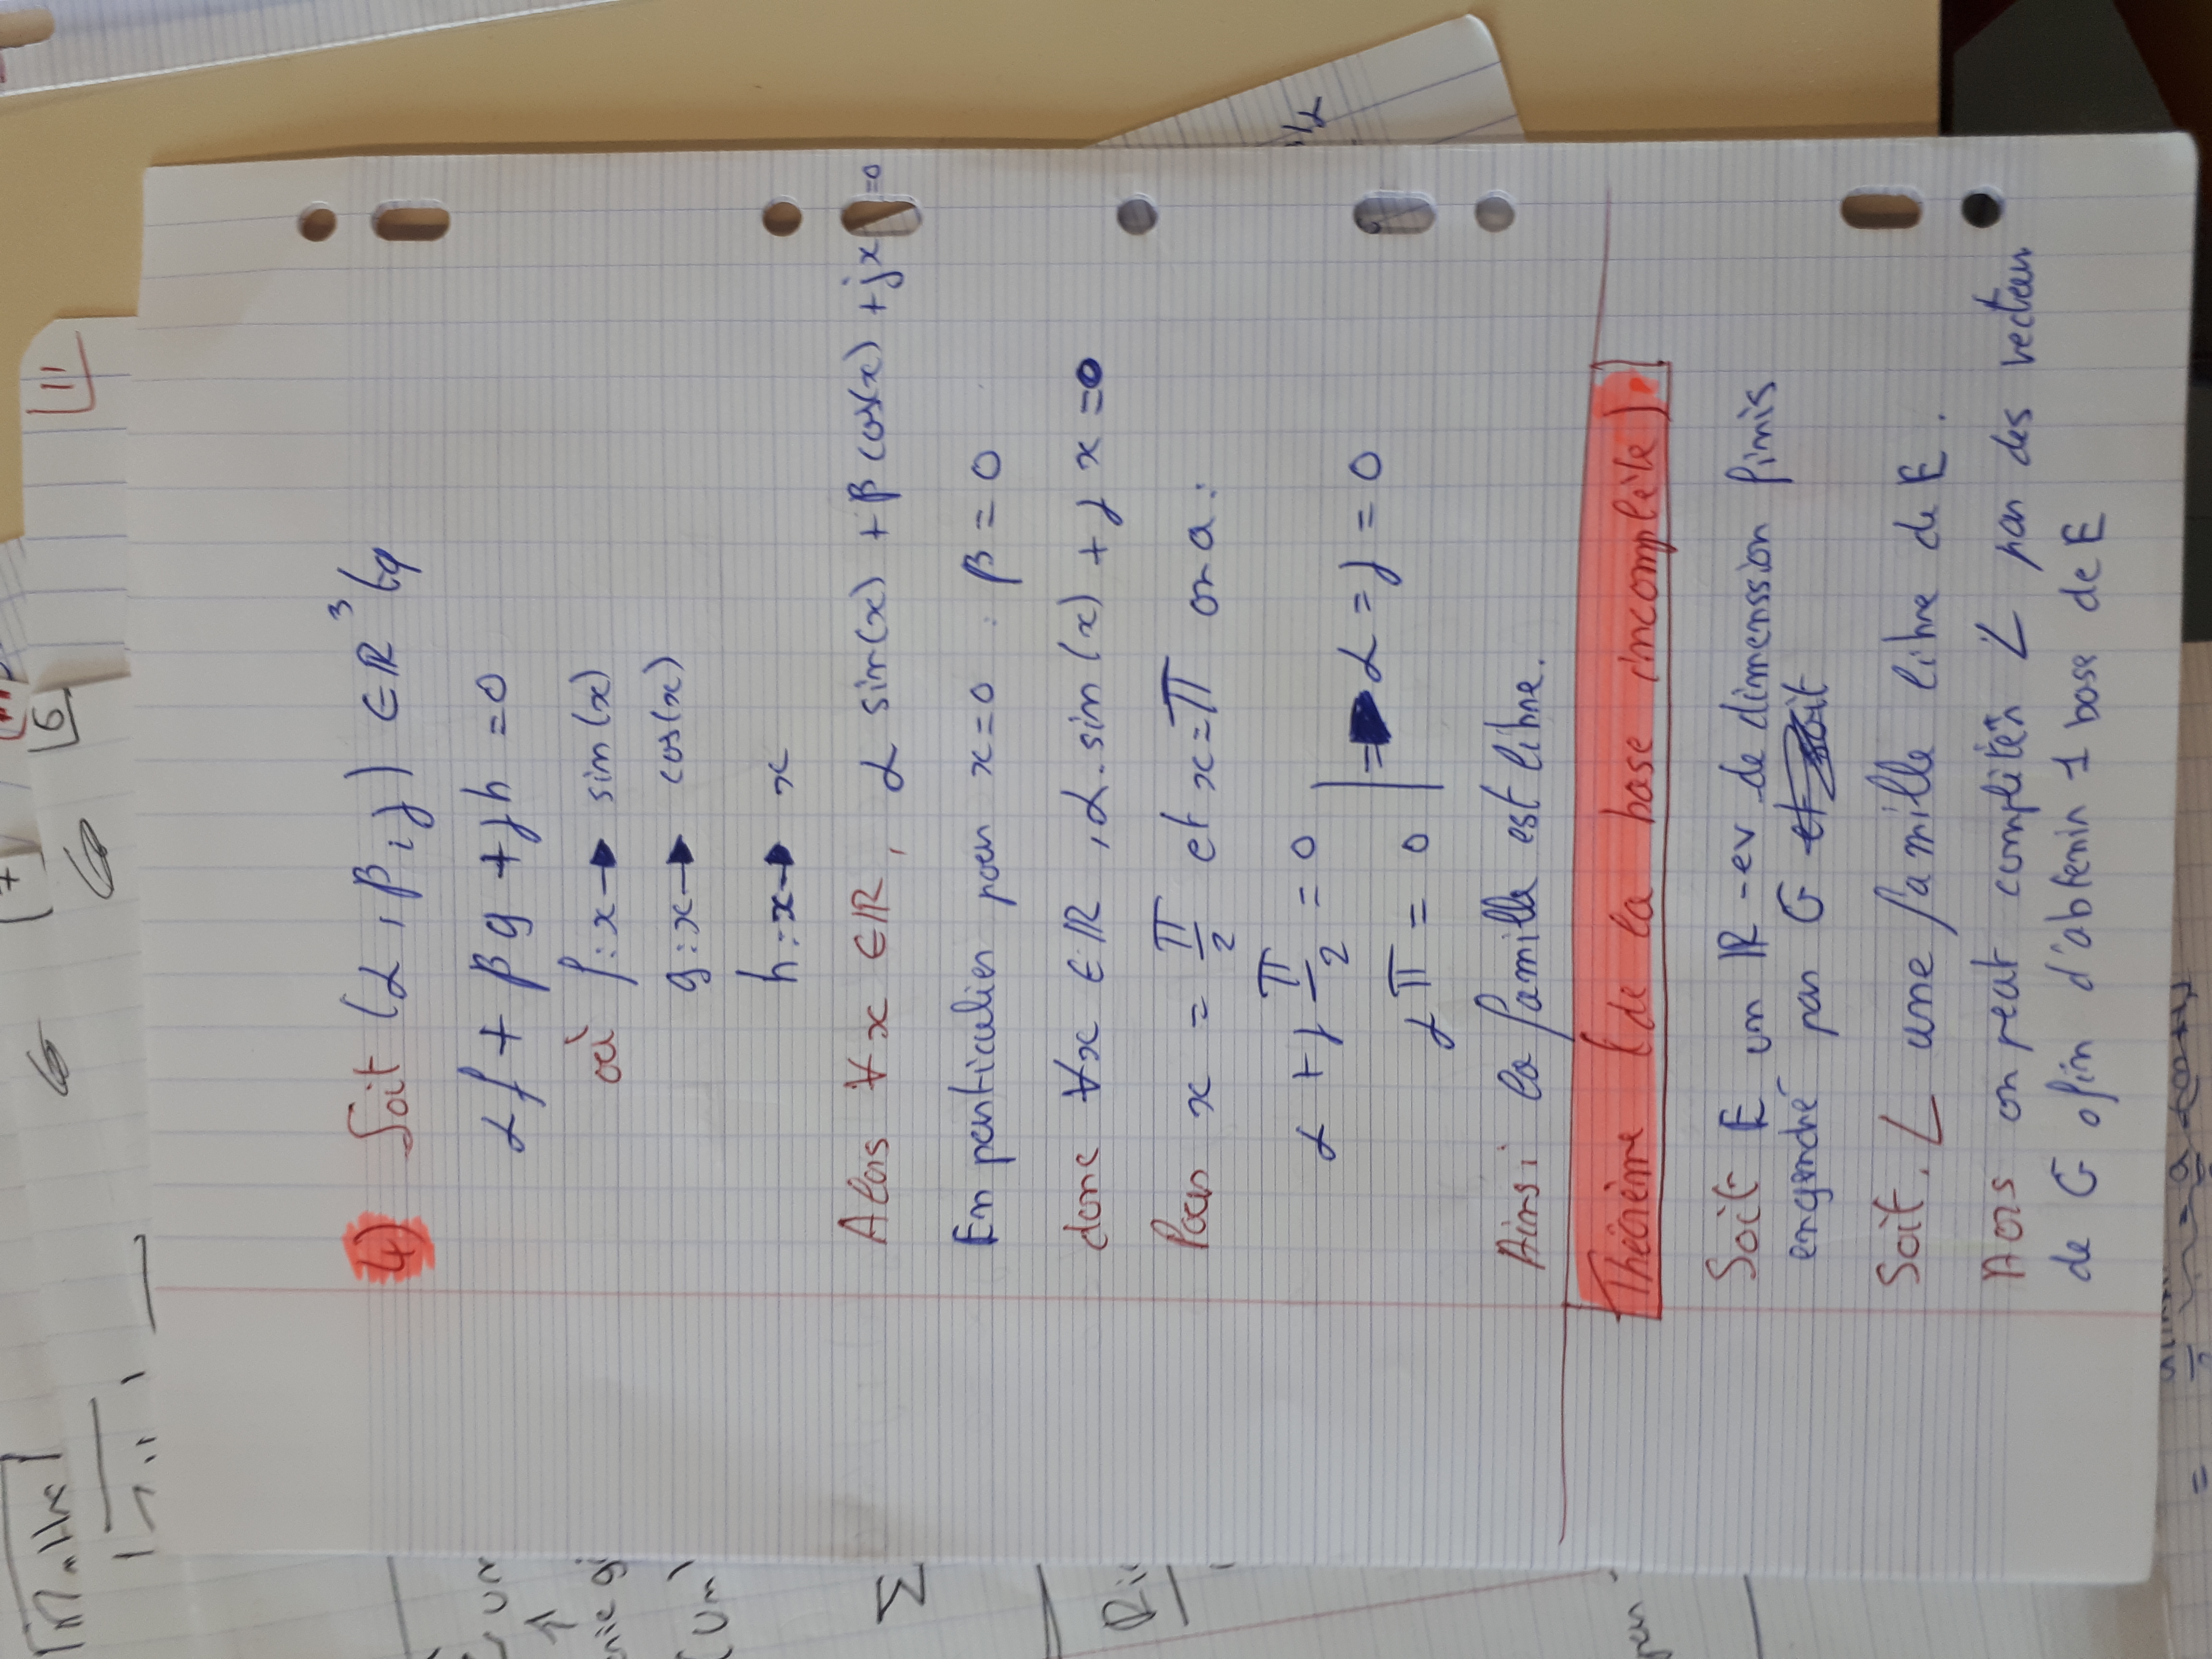 4) Soit (α, β, γ) ∈ ℝ³ tq
αf + βg + γh = 0
où f : x → sin(x)
g : x → cos(x)
h : x → x
Alors ∀ x ∈ ℝ, α sin(x) + β cos(x) + γx = 0
En particulier pour x = 0 : β = 0
donc ∀x ∈ ℝ, α.sin(x) + γx = 0
Pour x = π/2 et x = π on a :
α + γ π/2 = 0
γπ = 0 | ⇒ α = γ = 0
Ainsi la famille est libre.
Théorème (de la base incomplète).
Soit E un ℝ-ev de dimenssion finis
engendré par G et soit
Soit L une famille libre de E.
Alors on peut compléter L par des vecteurs
de G afin d'obtenir 1 base de E